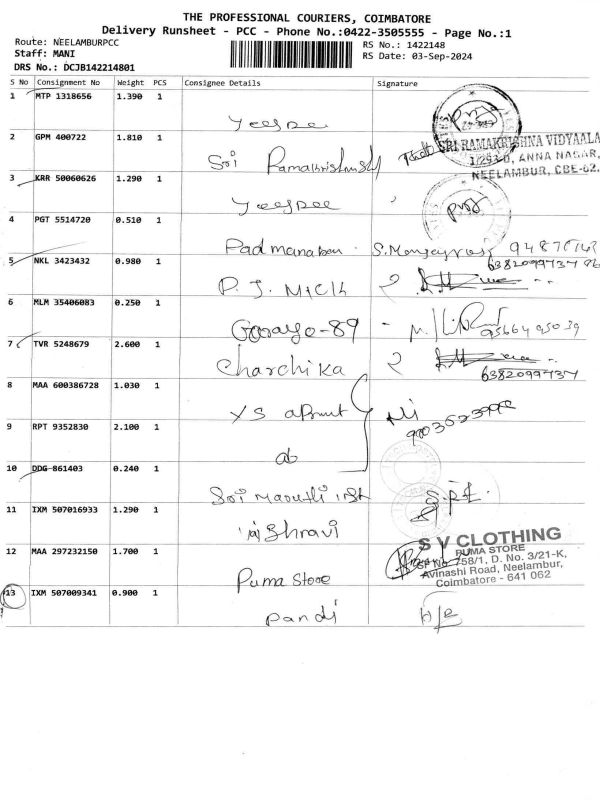 THE PROFESSIONAL COURIERS, COIMBATORE
Delivery Runsheet - PCC - Phone No.:0422-3505555 - Page No.:1
Route: NEELAMBURPCC
Staff: MANI
DRS No.: DCJB142214801
RS No.: 1422148
RS Date: 03-Sep-2024
S No Consignment No Weight PCS Consignee Details Signature
1 MTP 1318656 1.390 1
Yeespee
2 GPM 400722 1.810 1
Sri
SRI RAMAKRISHNA VIDYAALA
1/253-D, ANNA NAGAR,
NEELAMBUR, CBE-62.
3 KRR 50060626 1.290 1
Yeespee
4 PGT 5514720 0.510 1
Padmanaban
5 NKL 3423432 0.980 1
6382099737
P. J.
6 MLM 35406083 0.250 1
7 TVR 5248679 2.600 1
Charchika
6382099737
8 MAA 600386728 1.030 1
9 RPT 9352830 2.100 1
ab
10 DDG 861403 0.240 1
Sri
11 IXM 507016933 1.290 1
Shravi
12 MAA 297232150 1.700 1
Puma Store
S V CLOTHING
PUMA STORE
SF No. 758/1, D. No. 3/21-K,
Avinashi Road, Neelambur,
Coimbatore - 641 062
13 IXM 507009341 0.900 1
Pandi